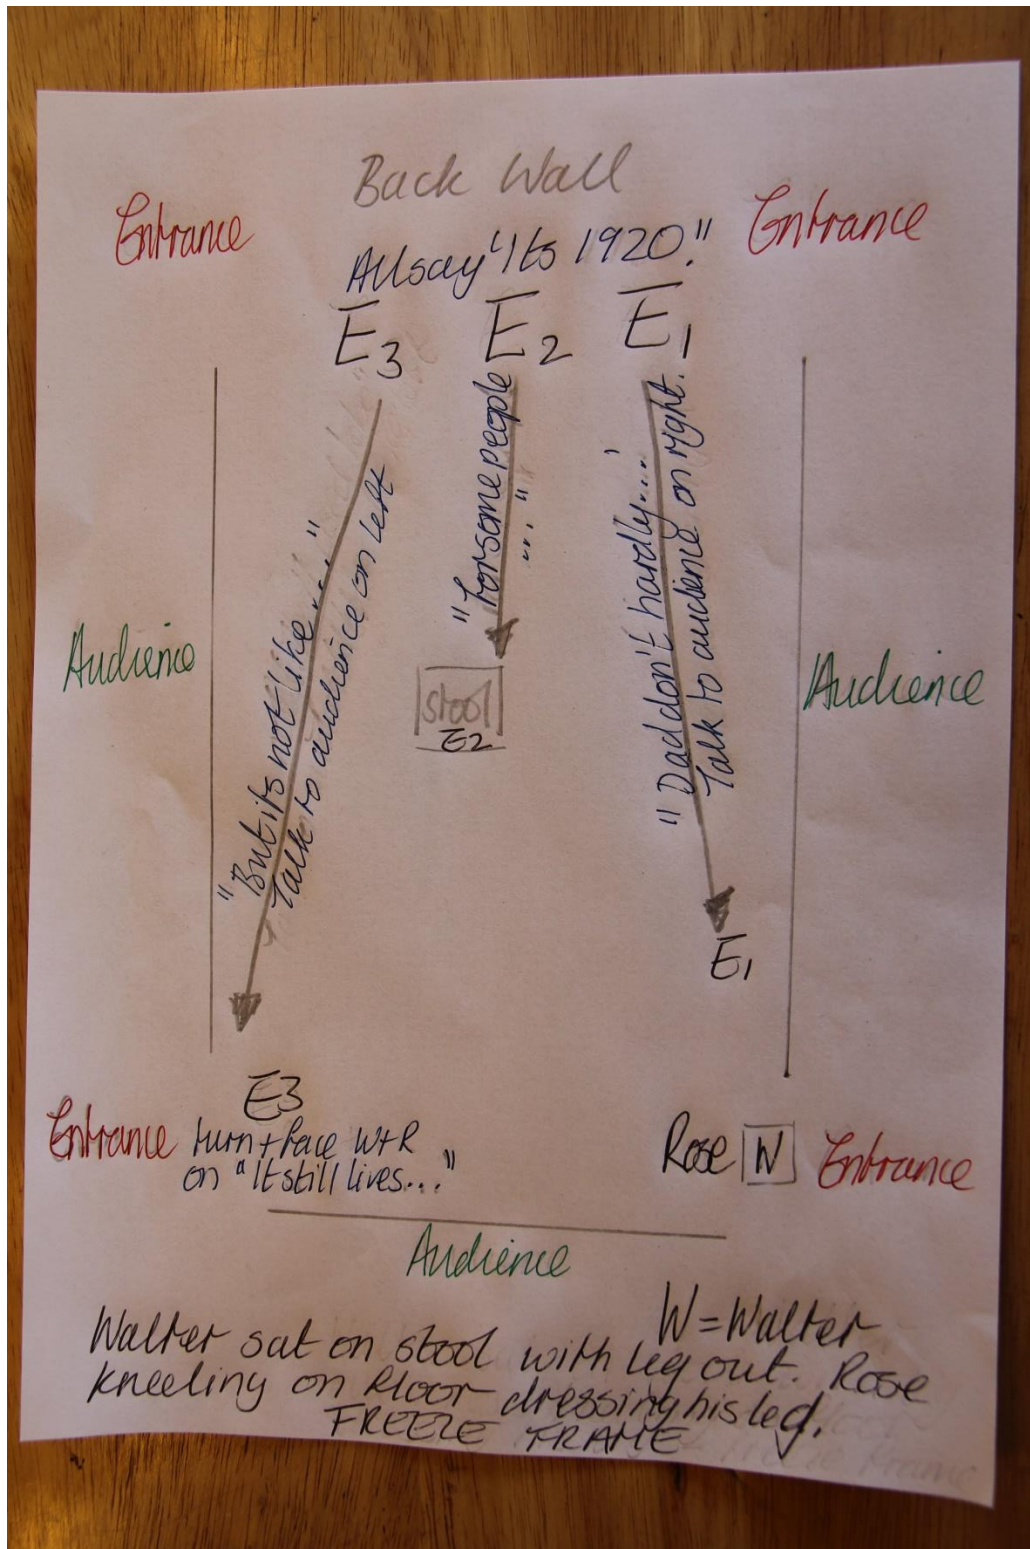 Back Wall
Entrance
Entrance
All say "Its 1920."
E3
E2
E1
"But its not like..."
Talk to audience on left
"For some people
..."
"Dad don't hardly....'
Talk to audience on right.
Audience
Audience
stool
E2
E1
E3
Entrance
turn + face W+R
on "It still lives..."
Rose
W
Entrance
Audience
W = Walter
Walter sat on stool with leg out. Rose
kneeling on floor dressing his leg.
FREEZE FRAME